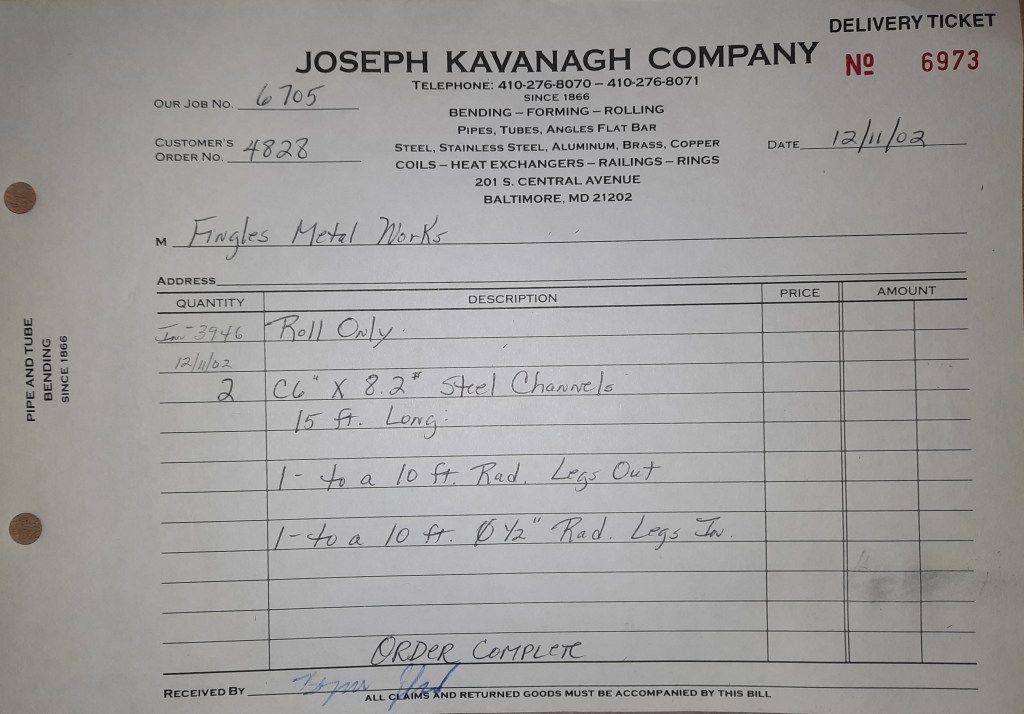 DELIVERY TICKET
JOSEPH KAVANAGH COMPANY
Nº 6973
TELEPHONE: 410-276-8070 – 410-276-8071
SINCE 1866
BENDING – FORMING – ROLLING
PIPES, TUBES, ANGLES FLAT BAR
STEEL, STAINLESS STEEL, ALUMINUM, BRASS, COPPER
COILS – HEAT EXCHANGERS – RAILINGS – RINGS
201 S. CENTRAL AVENUE
BALTIMORE, MD 21202
OUR JOB NO. 6705
CUSTOMER'S
ORDER NO. 4828
DATE 12/11/02
M Fingles Metal Works
ADDRESS
QUANTITY DESCRIPTION PRICE AMOUNT
Inv-3946 Roll Only.
12/11/02
2 C6" X 8.2# Steel Channels
15 ft. Long.
1- to a 10 ft. Rad. Legs Out
1- to a 10 ft. 0 1/2" Rad. Legs In.
ORDER COMPLETE
RECEIVED BY
ALL CLAIMS AND RETURNED GOODS MUST BE ACCOMPANIED BY THIS BILL
PIPE AND TUBE
BENDING
SINCE 1866